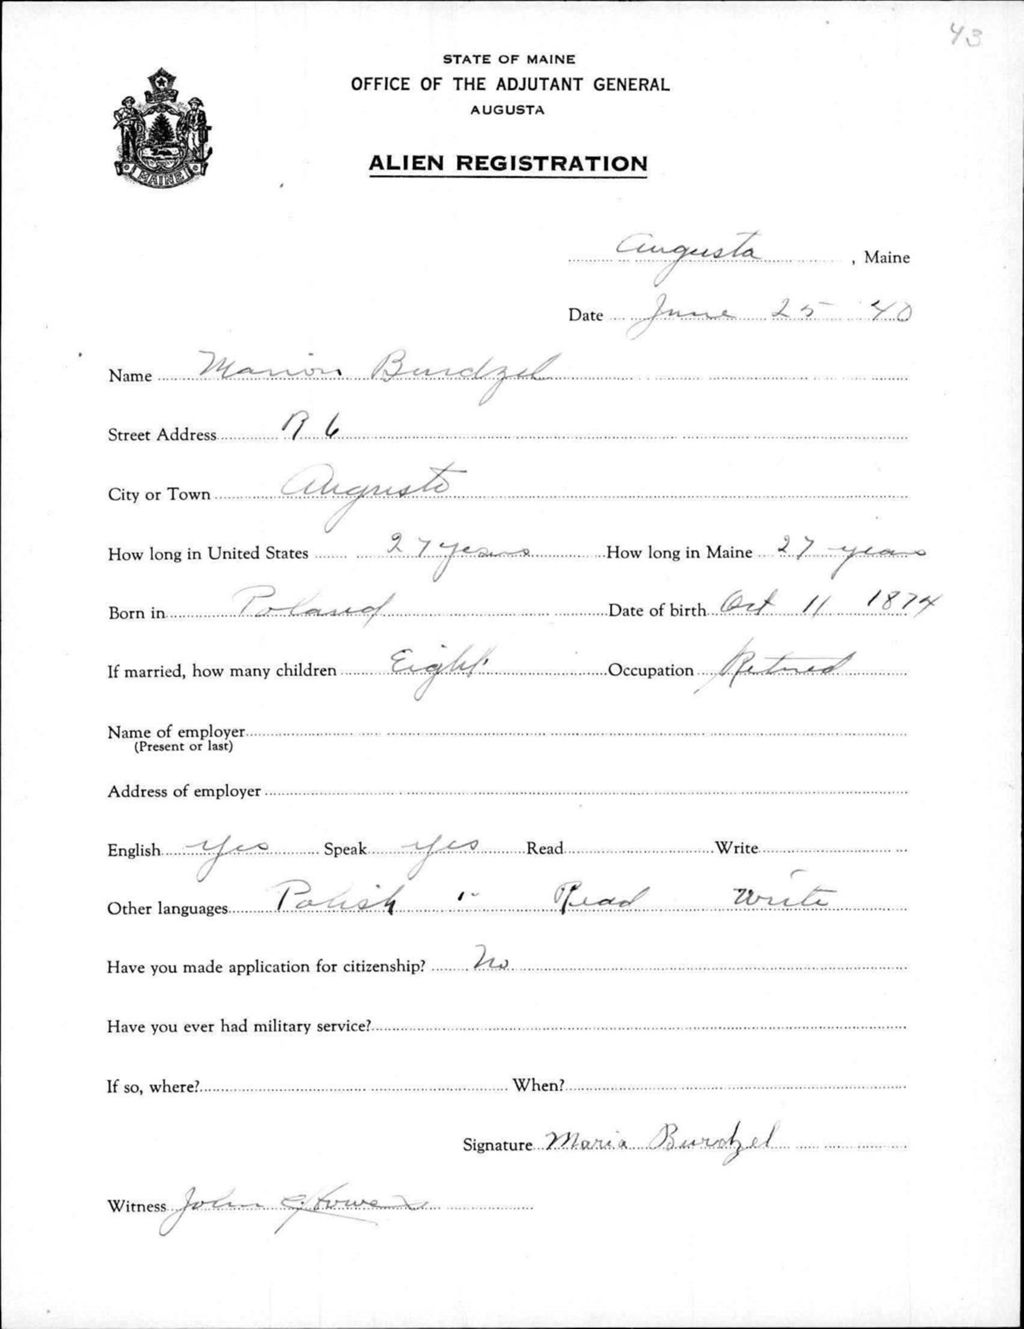 43
STATE OF MAINE
OFFICE OF THE ADJUTANT GENERAL
AUGUSTA
MAINE
ALIEN REGISTRATION
Augusta, Maine
Date June 25 40
Name Marion Burdzel
Street Address R 6
City or Town Augusta
How long in United States 27 years How long in Maine 27 years
Born in Poland Date of birth Oct 11 1874
If married, how many children Eight Occupation Retired
Name of employer
(Present or last)
Address of employer
English yes Speak yes Read Write
Other languages Polish " Read Write
Have you made application for citizenship? No
Have you ever had military service?
If so, where? When?
Signature Maria Burdzel
Witness John